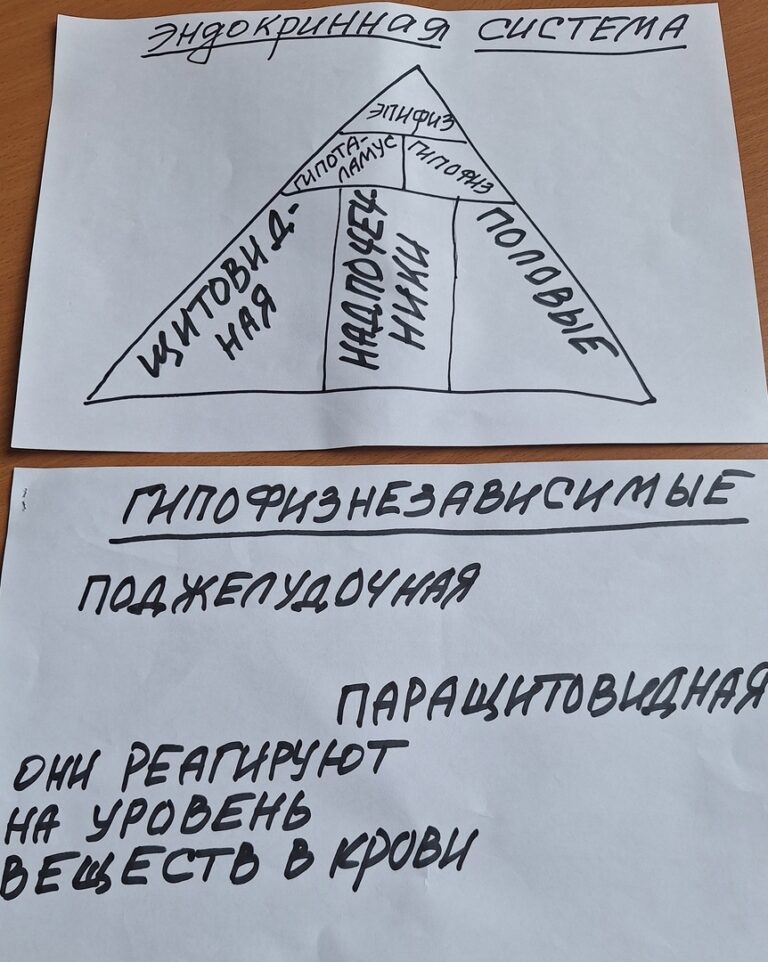 ЭНДОКРИННАЯ СИСТЕМА
ЭПИФИЗ
ГИПОТА-
ЛАМУС
ГИПОФИЗ
ЩИТОВИД-
НАЯ
НАДПОЧЕЧ
НИКИ
ПОЛОВЫЕ
ГИПОФИЗНЕЗАВИСИМЫЕ
ПОДЖЕЛУДОЧНАЯ
ПАРАЩИТОВИДНАЯ
ОНИ РЕАГИРУЮТ
НА УРОВЕНЬ
ВЕЩЕСТВ В КРОВИ